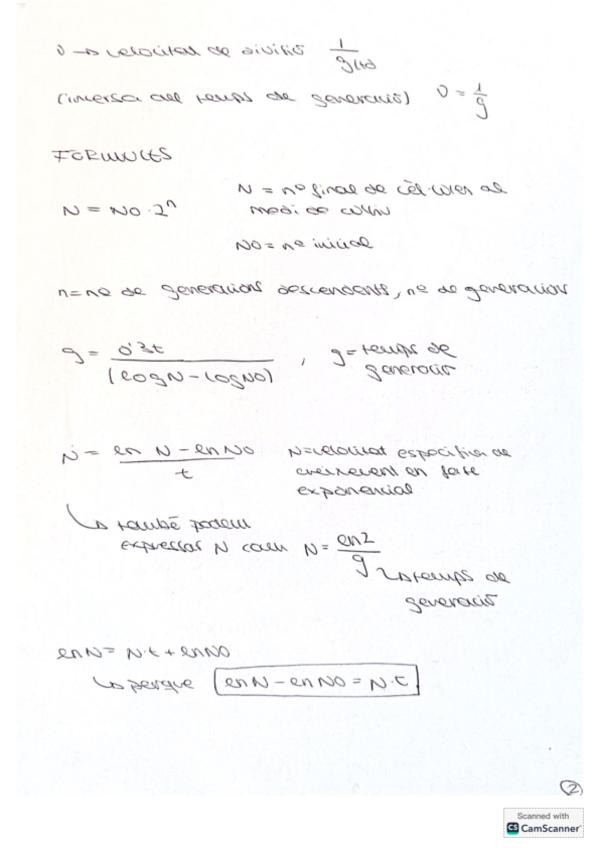 υ → velocitat de divisió 1/g(td)
(inversa del temps de generació) υ = 1/g
FORMULES
N = N0·2ⁿ
N = nº final de cèl·lules al
medi de cultiu
N0 = nº inicial
n = nº de generacions descendents, nº de generacions
g = 0'3t / (log N - log N0) , g = temps de
generació
μ = ln N - ln N0 / t
μ = velocitat específica de
creixement en fase
exponencial
↳ també podem
expressar μ com μ = ln2 / g
↳ temps de
generació
ln N = μ·t + ln N0
↳ perque ln N - ln N0 = μ·t
2
Scanned with
CS CamScanner